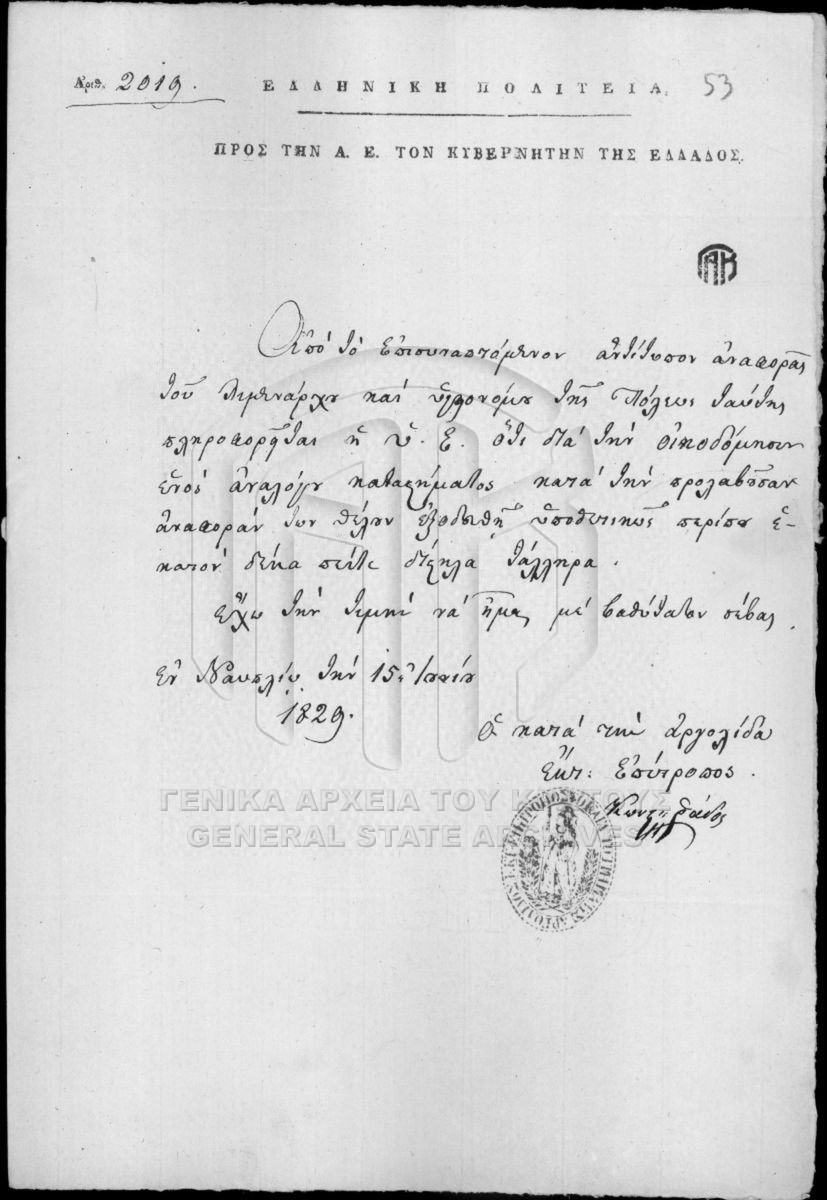 Αριθ. 2019.
ΕΛΛΗΝΙΚΗ ΠΟΛΙΤΕΙΑ. 53
ΠΡΟΣ ΤΗΝ Α. Ε. ΤΟΝ ΚΥΒΕΡΝΗΤΗΝ ΤΗΣ ΕΛΛΑΔΟΣ.
ΓΑΚ
Ἀπὸ τὸ ἐπισυναπτόμενον ἀντίτυπον ἀναφορᾶς
τοῦ Λιμενάρχου καὶ ὑγειονόμου τῆς Πόλεως ταύτης
πληροφορῆται ἡ ὑ. Ε. ὅτι διὰ τὴν οἰκοδόμησιν
ἑνὸς ἀναλόγου καταστήματος κατὰ τὴν προλαβοῦσαν
ἀναφοράν των θέλουν ἐξοδευθῆ ὑποθετικῶς περίπου ἑ-
κατὸν δέκα πέντε δίστηλα τάλληρα.
Ἔχω τὴν τιμὴν νὰ ἦμαι μὲ βαθύτατον σέβας
Ἐν Ναυπλίῳ τὴν 15
1829.
Ὁ κατὰ τὴν Ἀργολίδα
Ἐκτ: Ἐπίτροπος.
ΓΕΝΙΚΑ ΑΡΧΕΙΑ ΤΟΥ ΚΡΑΤΟΥΣ
GENERAL STATE ARCHIVES